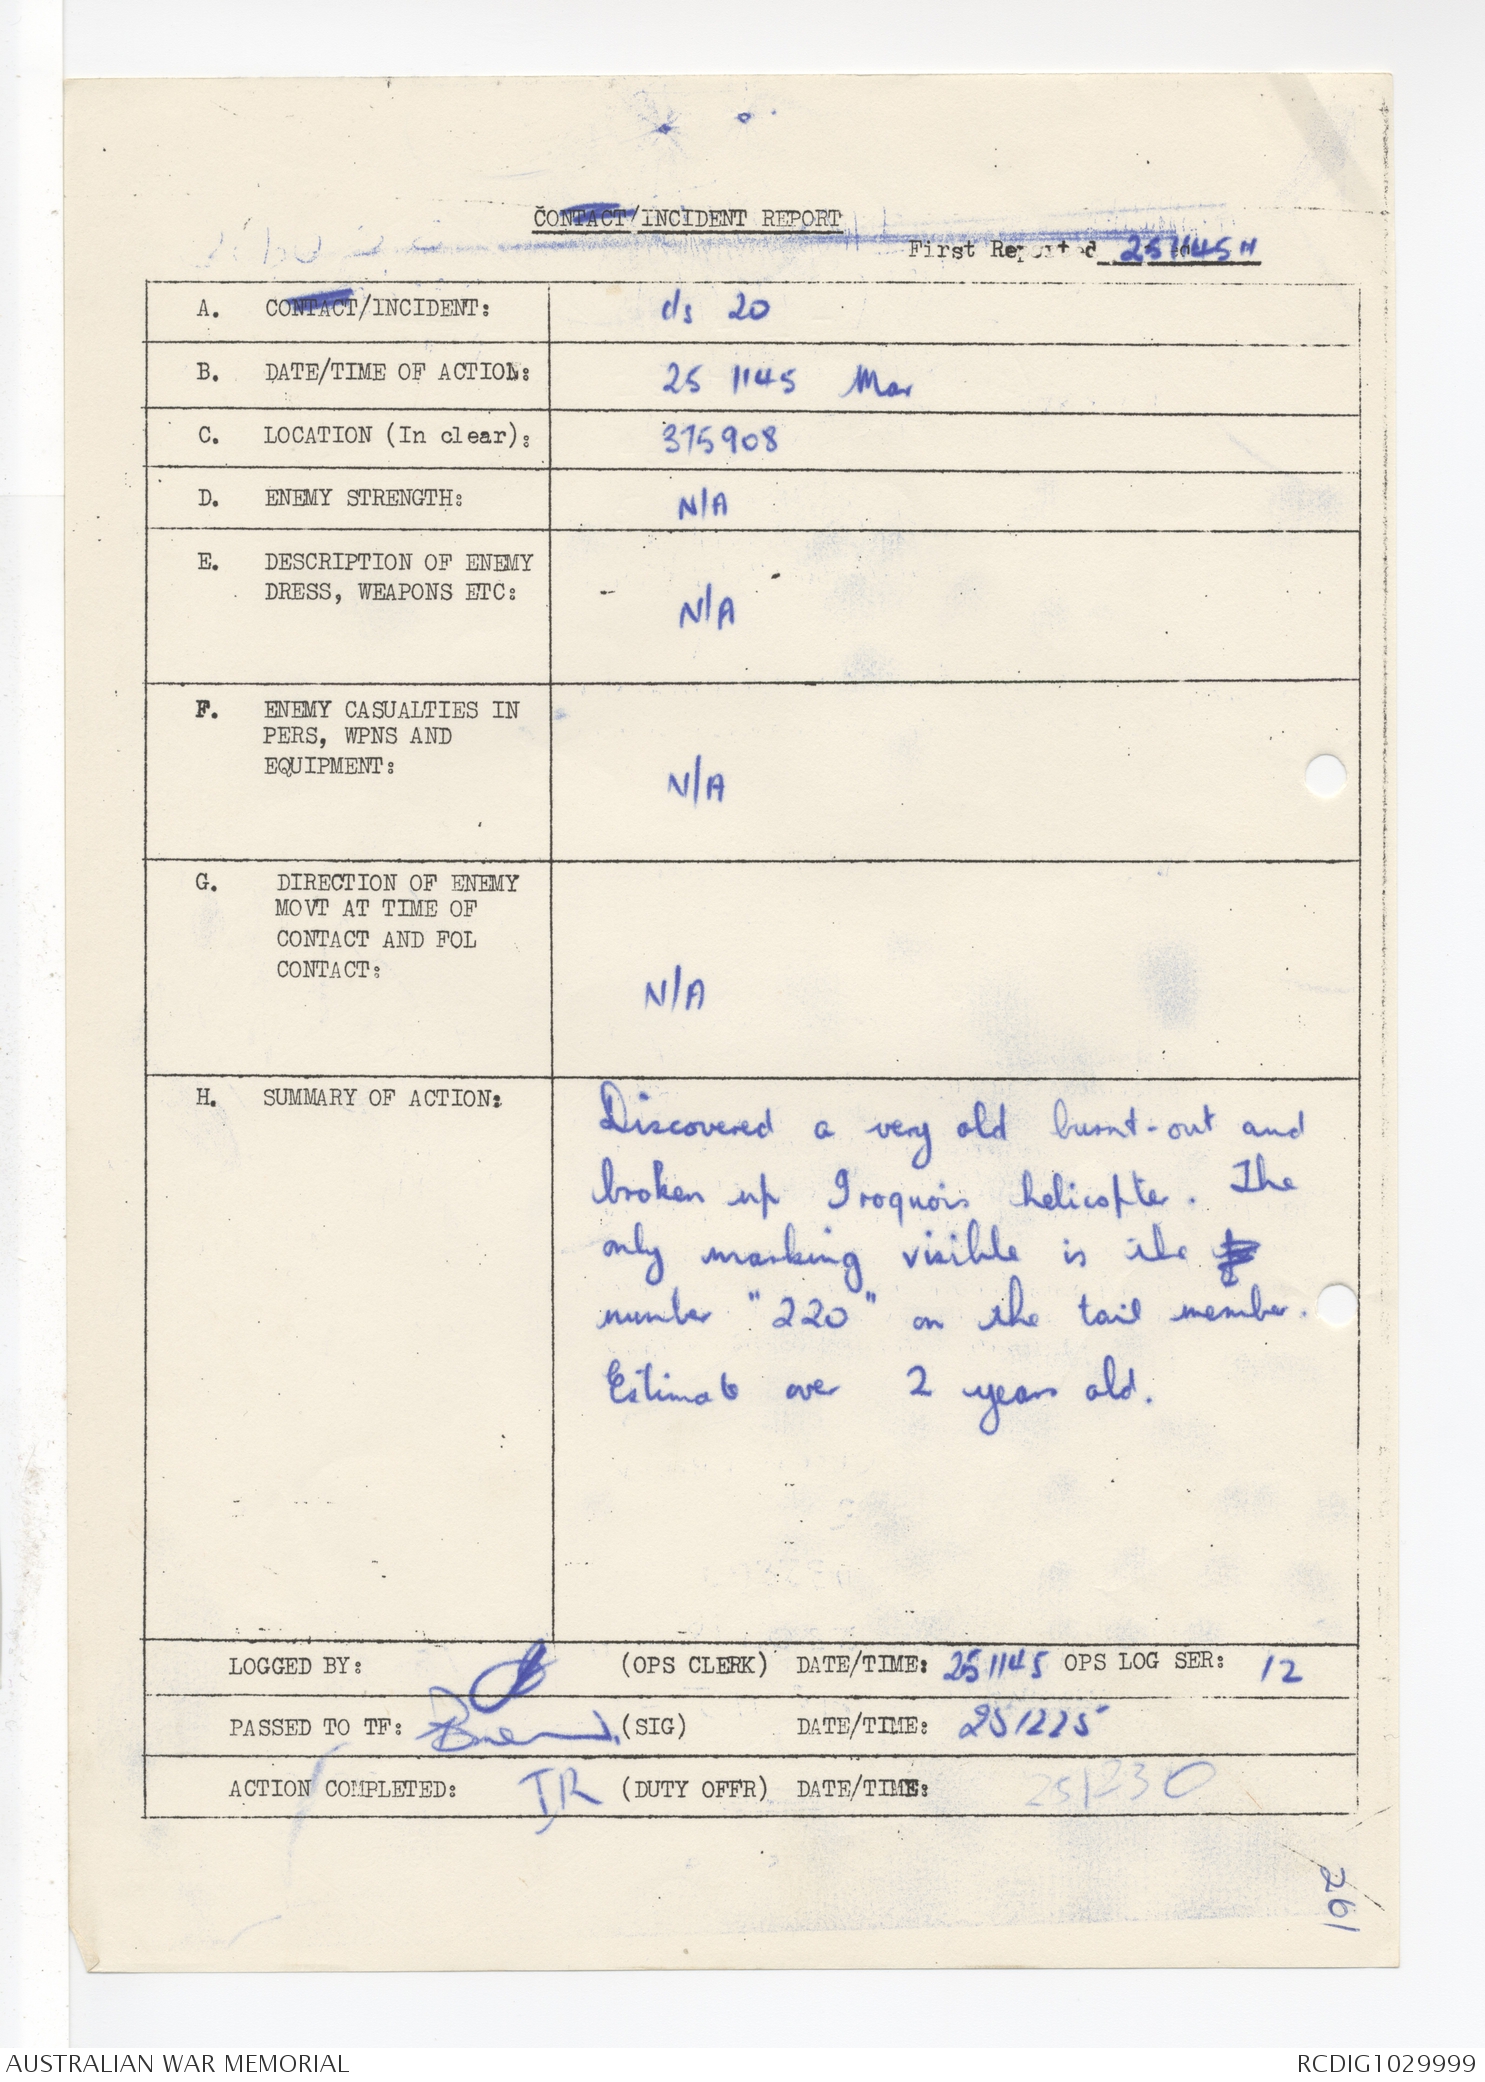 CONTACT/INCIDENT REPORT
First Reported 251145H
A. CONTACT/INCIDENT: c/s 20
B. DATE/TIME OF ACTION: 25 1145 Mar
C. LOCATION (In clear): 375908
D. ENEMY STRENGTH: N/A
E. DESCRIPTION OF ENEMY
DRESS, WEAPONS ETC: N/A
F. ENEMY CASUALTIES IN
PERS, WPNS AND
EQUIPMENT: N/A
G. DIRECTION OF ENEMY
MOVT AT TIME OF
CONTACT AND FOL
CONTACT: N/A
H. SUMMARY OF ACTION: Discovered a very old burnt-out and
broken up Iroquois helicopter. The
only marking visible is the
number "220" on the tail member.
Estimate over 2 years old.
LOGGED BY: (OPS CLERK) DATE/TIME: 251145 OPS LOG SER: 12
PASSED TO TF: (SIG) DATE/TIME: 251225
ACTION COMPLETED: (DUTY OFFR) DATE/TIME: 251230
261
AUSTRALIAN WAR MEMORIAL RCDIG1029999